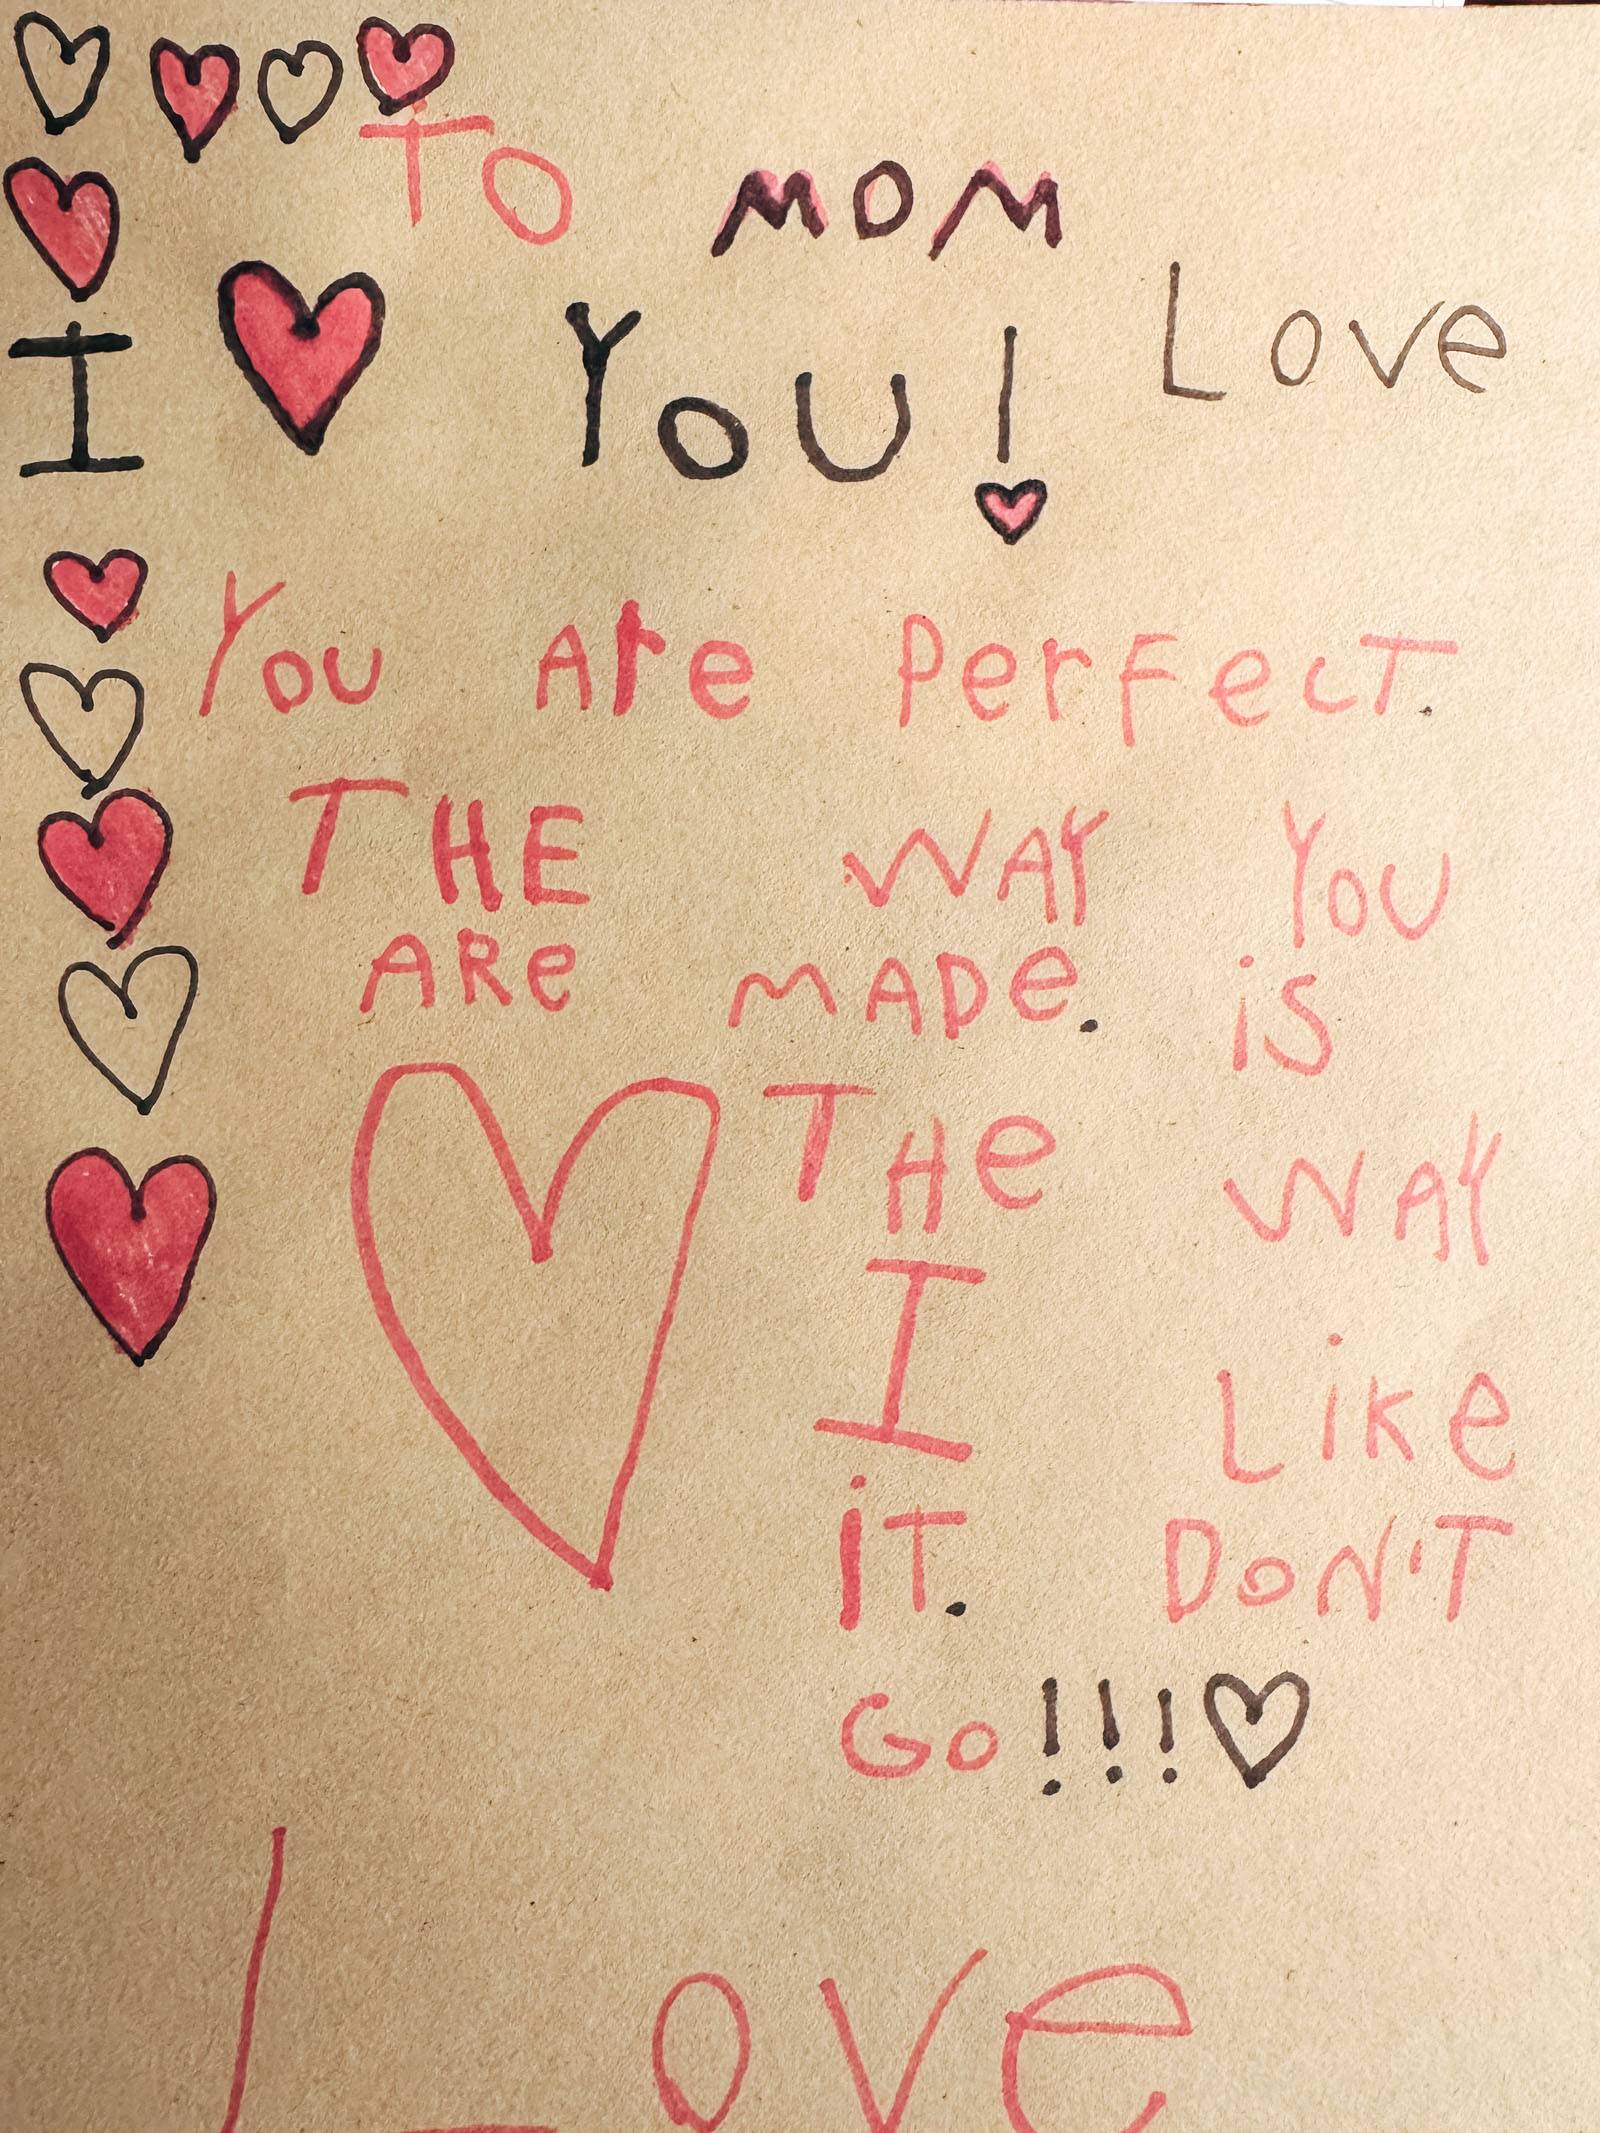 TO MOM
I ♥ YOU! Love
You Are PerFecT.
THE WAY YOU
ARe MADe. is
THe WAY
I Like
iT. DON'T
Go!!!♡
Love